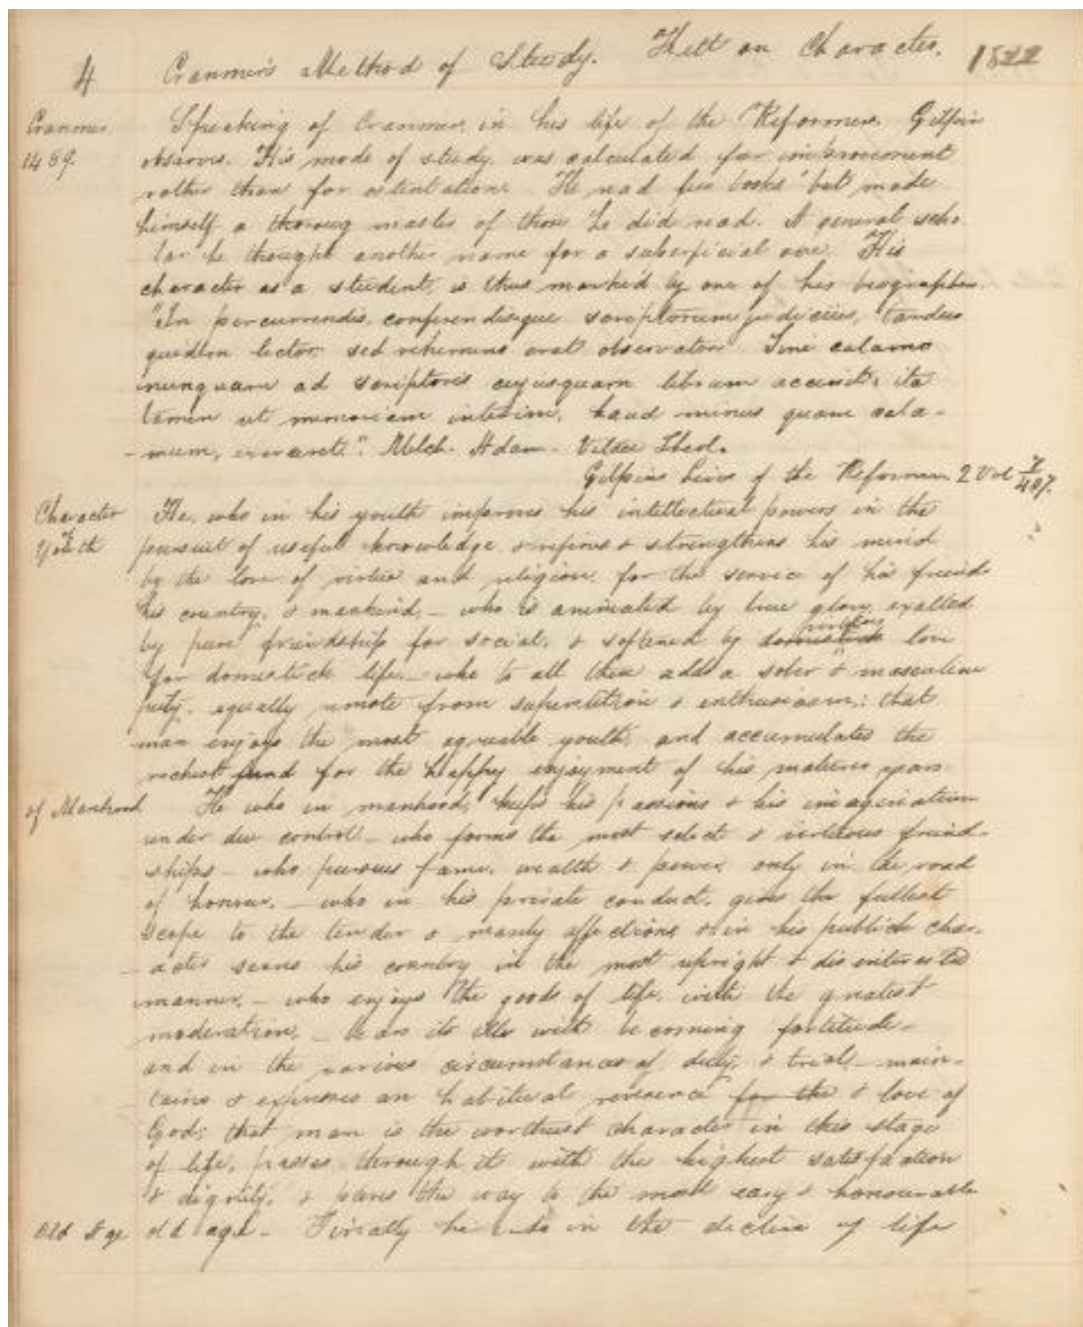 4 Cranmer's Method of Study. Thett on Character. 1822
Cranmer. Speaking of Cranmer, in his life of the Reformers. Gilpin
1489. observes. His mode of study, was calculated for improvement
rather than for ostentation. He read few books but made
himself a thoroug master of those he did read. A general scho
lar he thought another name for a superficial one. His
character as a student, is thus marked by one of his biographers.
"In percurrendis, conferendisque scriptorum judiciis, tardus
quidem lector, sed vehemens erat observator Sine calamo
nunquam ad scriptoris cujusquam librum accessit; ita
tamen ut memoriam interim, haud minus quam cala-
-mum, exerceret." Melch. Adam. Vitae Theol.
Gilpins Lives of the Reformers. 2 Vol 7/407.
Character He, who in his youth improves his intellectual powers in the
of Youth pursuit of useful knowledge, & refines & strengthens his mind
by the love of virtue and religion, for the service of his friends
his country, & mankind, - who is animated by true glory, exalted
by pure friendship for social, & softened by virtuous love
for domestick life, - who to all these adds a sober & masculine
piety, equally remote from superstition & enthusiasm; that
man enjoys the most agreeable youth, and accumulates the
richest fund for the happy enjoyment of his maturer years.
of Manhood He who in manhood, keeps his passions & his imagination
under due control. - who forms the most select & virtuous friend-
ships - who pursues fame, wealth & power, only in the road
of honour, - who in his private conduct, gives the fullest
scope to the tender & manly affections, & in his publick char-
-acter serves his country in the most upright & disinterested
manner, - who enjoys the goods of life, with the greatest
moderation, - bears its ills with becoming fortitude -
and in the various circumstances of duty, & trial - main-
tains & expresses an habitual reverence for the & love of
God; that man is the worthiest character in this stage
of life, passes through it with the highest satisfaction
& dignity, & paves the way to the most easy & honourable
Old Age old age - Finally he in the decline of life